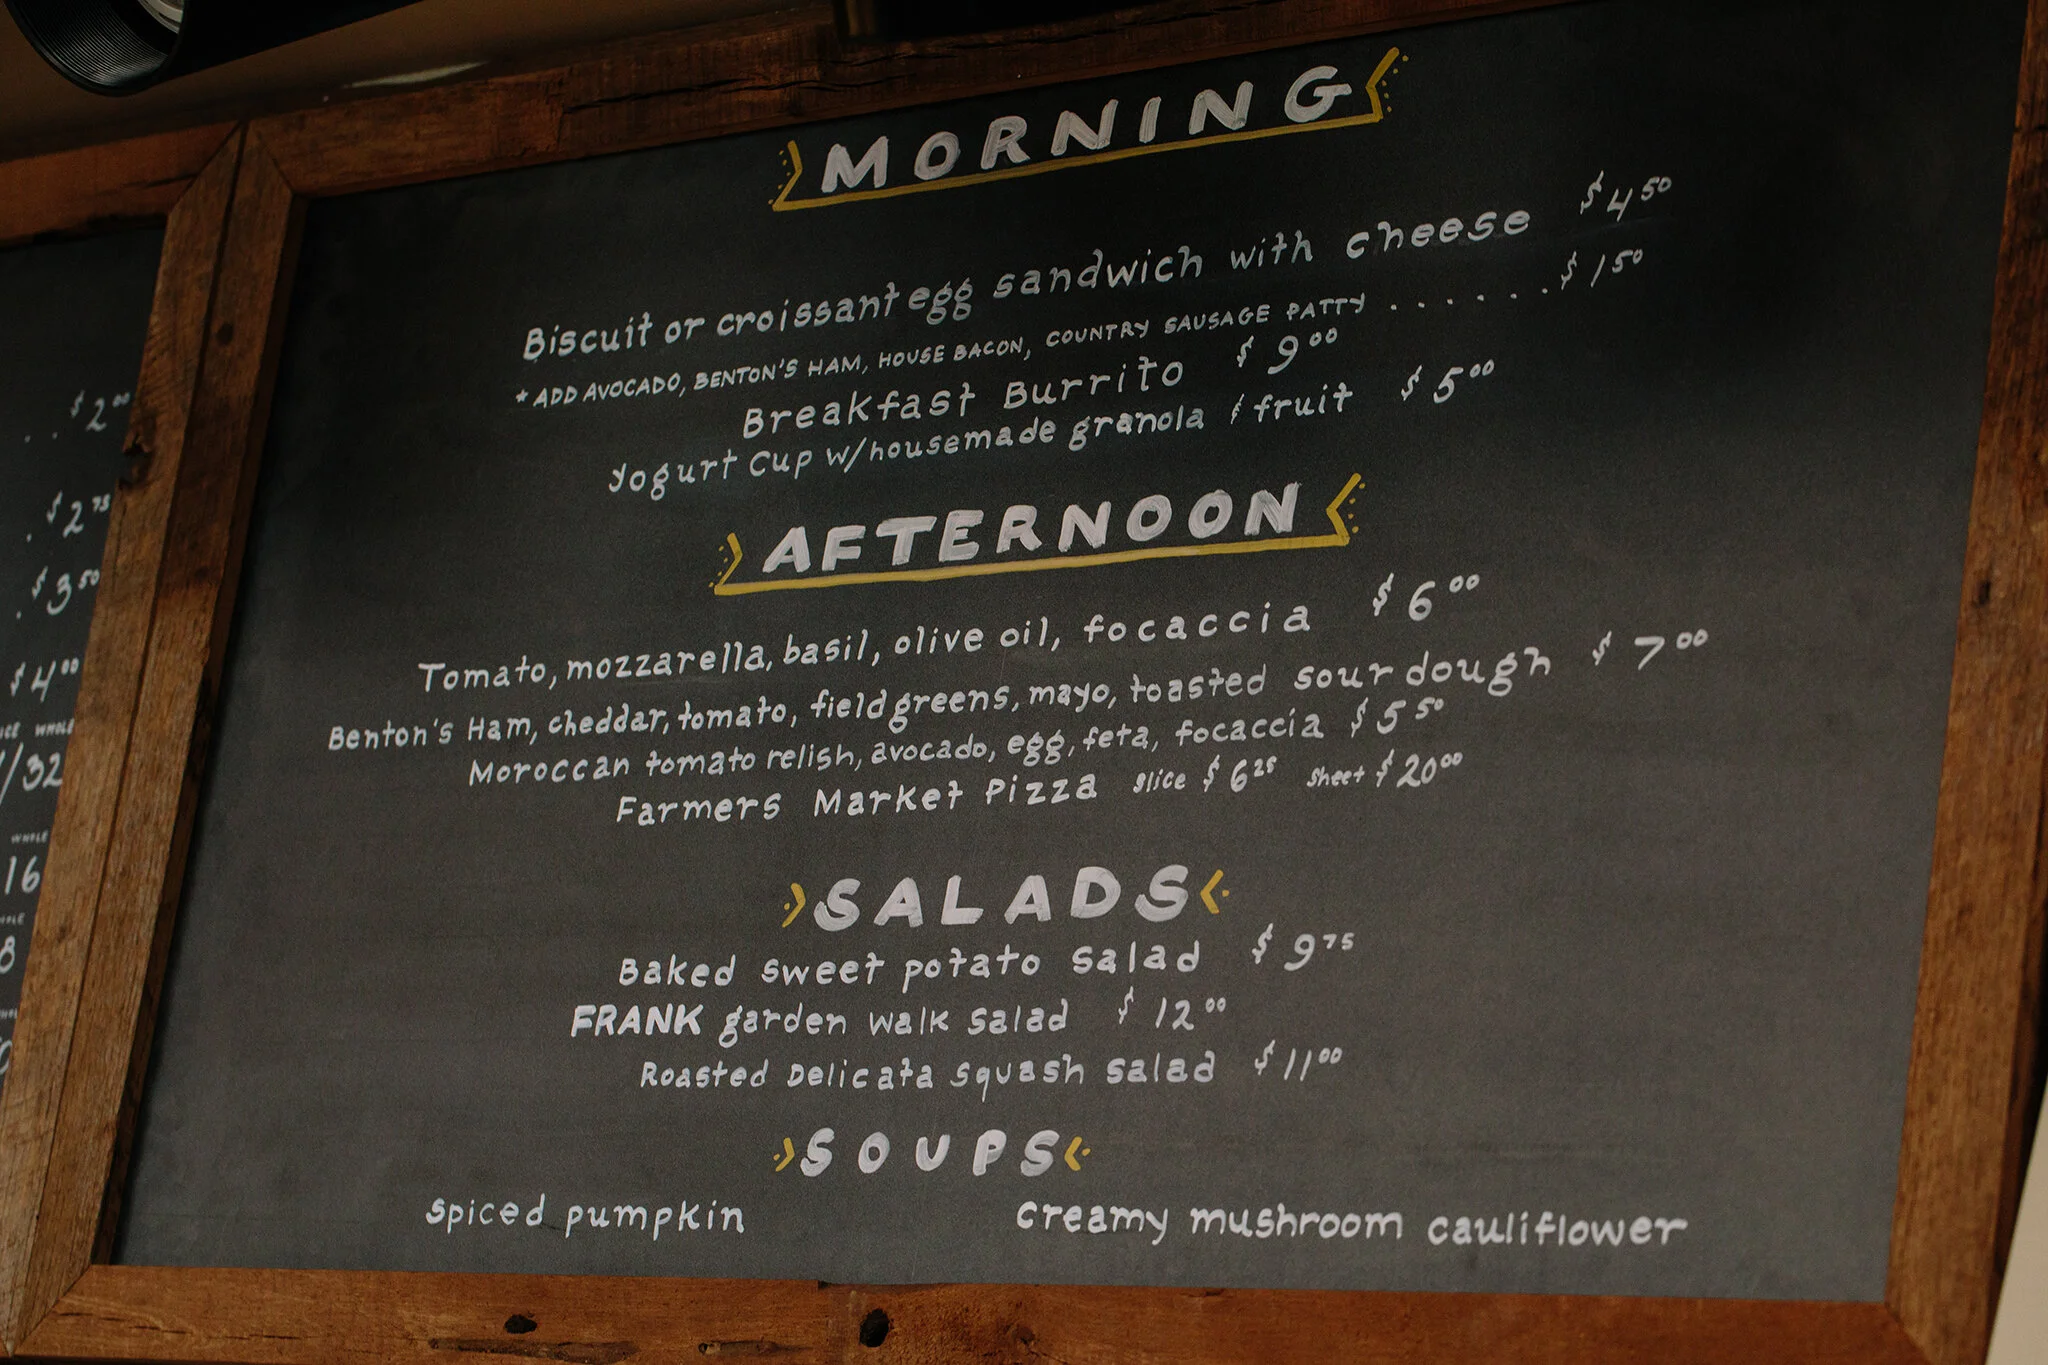 $2.00
. . $2.75
. $3.50
$4.00
WHOLE
/32
WHOLE
16
8
MORNING
Biscuit or croissant egg sandwich with cheese $4.50
* ADD AVOCADO, BENTON'S HAM, HOUSE BACON, COUNTRY SAUSAGE PATTY . . . . . . . $1.50
Breakfast Burrito $9.00
Yogurt Cup w/housemade granola & fruit $5.00
AFTERNOON
Tomato, mozzarella, basil, olive oil, focaccia $6.00
Benton's Ham, cheddar, tomato, field greens, mayo, toasted sourdough $7.00
Moroccan tomato relish, avocado, egg, feta, focaccia $5.50
Farmers Market Pizza slice $6.25 sheet $20.00
SALADS
Baked sweet potato salad $9.75
FRANK garden walk salad $12.00
Roasted Delicata squash salad $11.00
SOUPS
spiced pumpkin creamy mushroom cauliflower